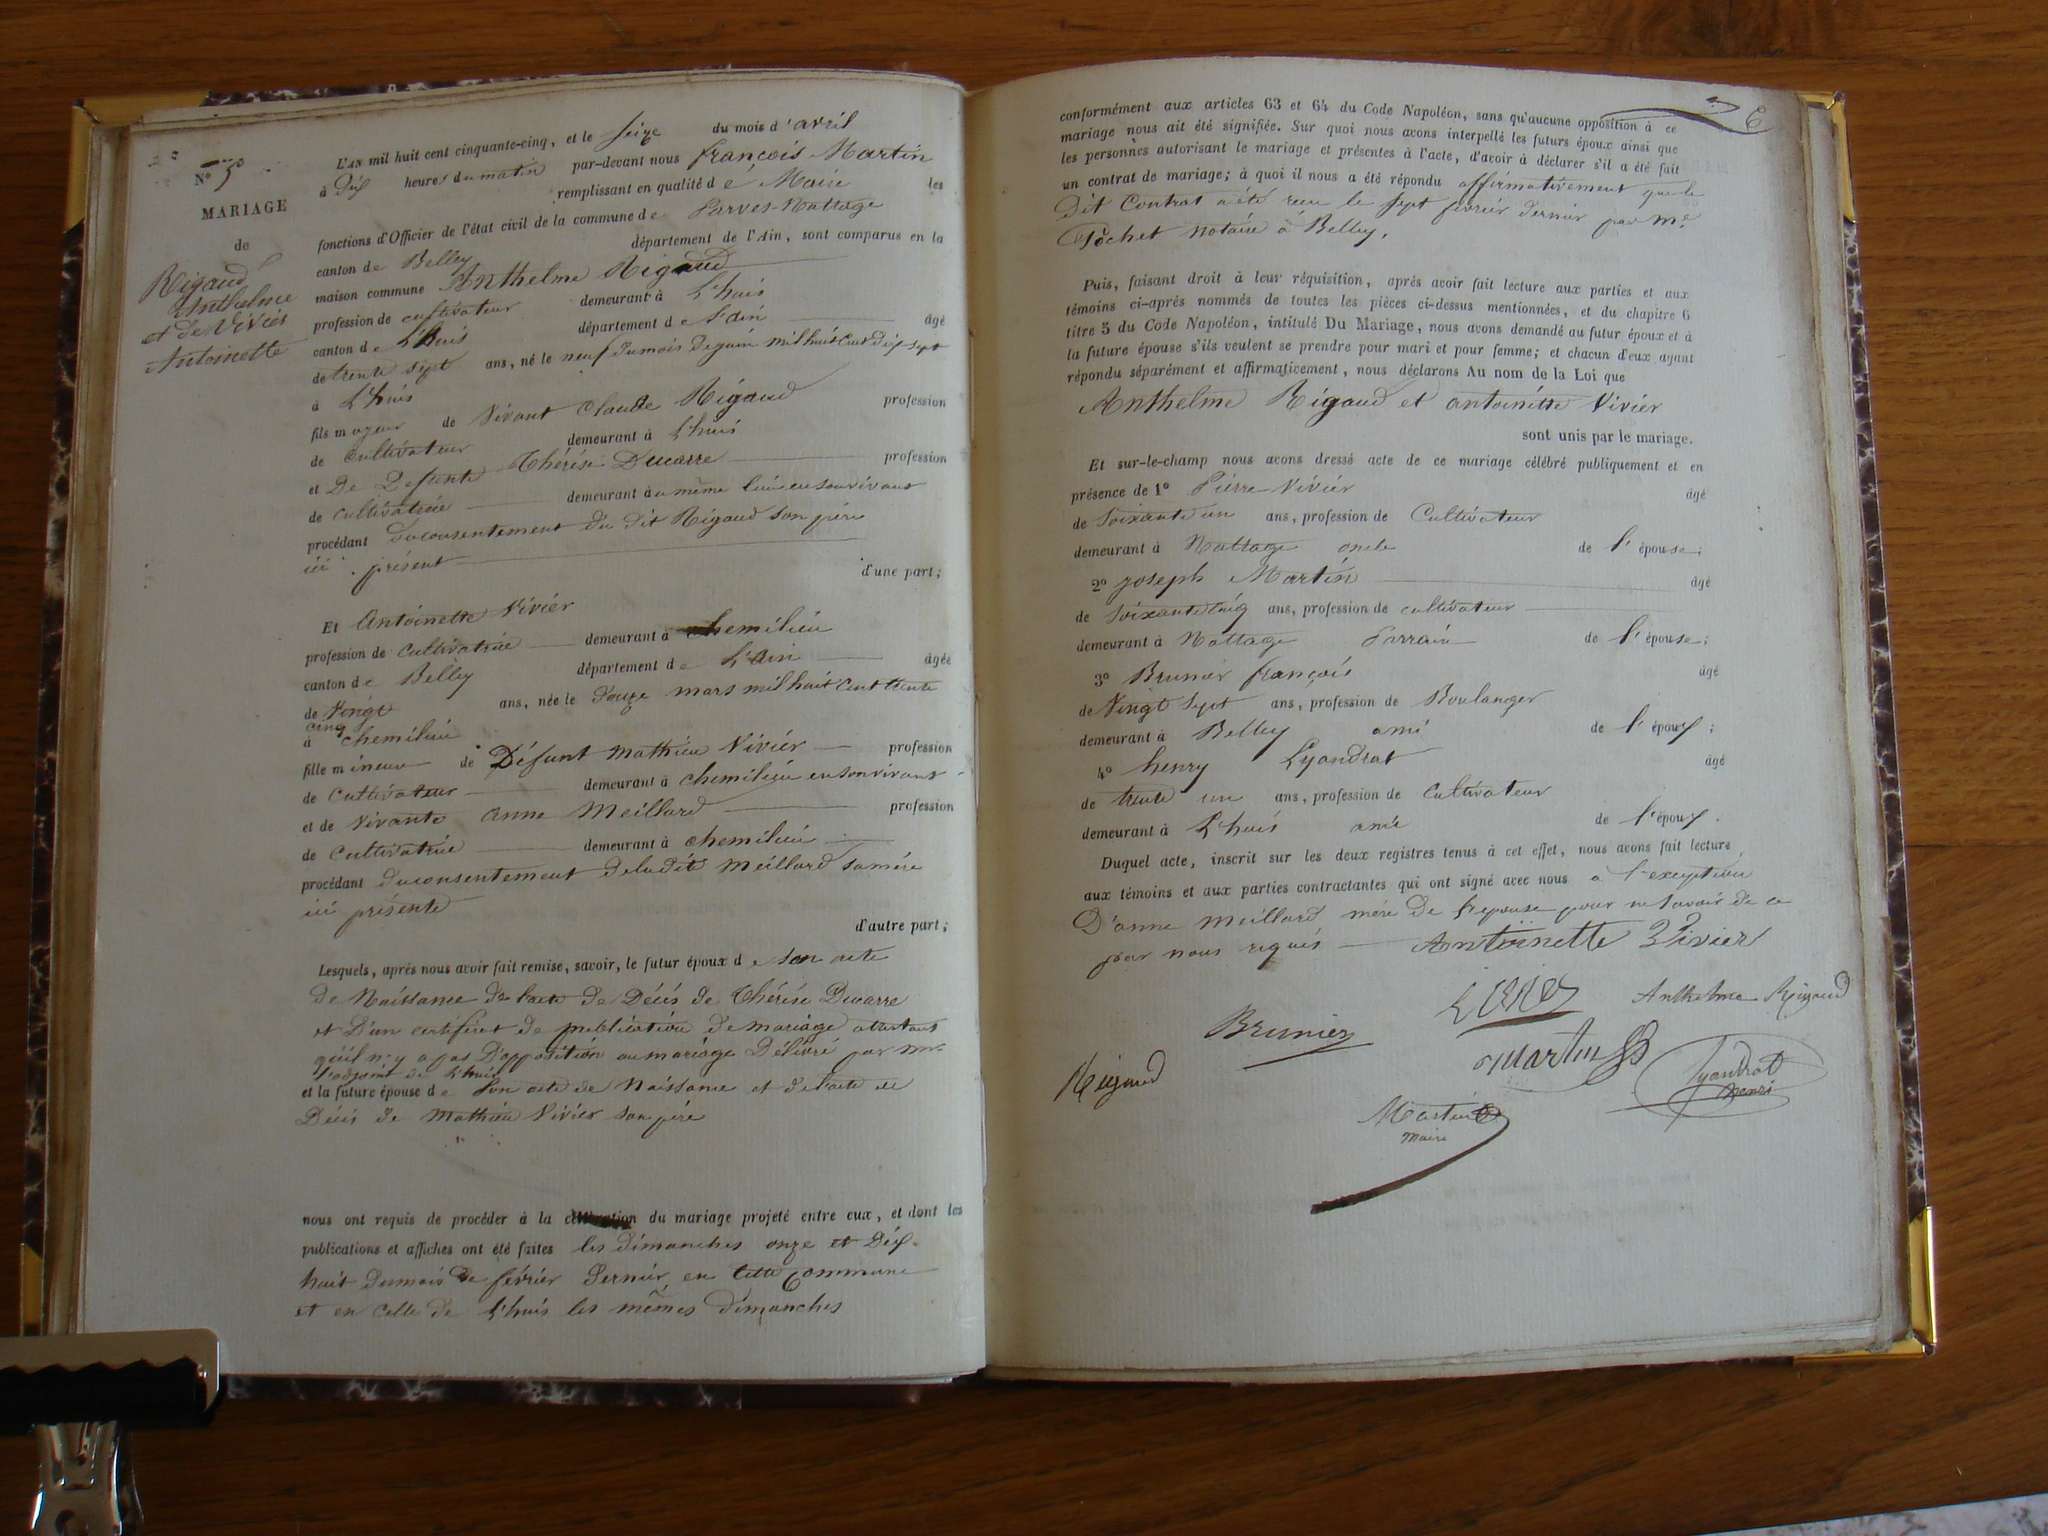 N° 5
MARIAGE
de
Rigaud
Anthelme
et de Vivier
Antoinette
L'AN mil huit cent cinquante-cinq, et le seize du mois d'avril
à dix heures du matin par-devant nous françois Martin
remplissant en qualité de Maire les
fonctions d'Officier de l'état civil de la commune de Parves-Nattage
canton de Belley département de l'Ain, sont comparus en la
maison commune Anthelme Rigaud
profession de cultivateur demeurant à L'huis
canton de L'huis département de l'ain âgé
de trente sept ans, né le neuf du mois de juin mil huit cent dix sept
à L'huis
fils majeur de Vivant Claude Rigaud profession
de Cultivateur demeurant à L'huis
et De Defunte Thérèse Ducarre profession
de cultivatrice demeurant au même lieu en son vivant
procédant du consentement du dit Rigaud son père
ici présent
d'une part;
Et Antoinette Vivier
profession de cultivatrice demeurant à chemilieu
canton de Belley département de L'ain âgée
de Vingt ans, née le douze mars mil huit cent trente
cinq
à chemilieu
fille mineure de Défunt Mathieu Vivier profession
de Cultivateur demeurant à chemilieu en son vivant
et de Vivante anne Meillard profession
de Cultivatrice demeurant à chemilieu
procédant du consentement de la dite Meillard sa mère
ici présente
d'autre part;
Lesquels, après nous avoir fait remise, savoir, le futur époux de son acte
de Naissance de l'acte de Décès de Thérèse Ducarre
et D'un certificat de publication de mariage attestant
qu'il n'y a pas D'opposition au mariage Délivré par Mr
l'adjoint de L'huis
et la future épouse de Son acte de Naissance et de l'acte de
Décès de Mathieu Vivier son père
nous ont requis de procéder à la célébration du mariage projeté entre eux, et dont les
publications et affiches ont été faites les dimanches onze et Dix
huit du mois de février Dernier en cette Commune
et en celle de L'huis les mêmes dimanches
6
conformément aux articles 63 et 64 du Code Napoléon, sans qu'aucune opposition à ce
mariage nous ait été signifiée. Sur quoi nous avons interpellé les futurs époux ainsi que
les personnes autorisant le mariage et présentes à l'acte, d'avoir à déclarer s'il a été fait
un contrat de mariage; à quoi il nous a été répondu affirmativement que le
Dit Contrat a été reçu le sept février dernier par Me
Pochet notaire à Belley.
Puis, faisant droit à leur réquisition, après avoir fait lecture aux parties et aux
témoins ci-après nommés de toutes les pièces ci-dessus mentionnées, et du chapitre 6
titre 5 du Code Napoléon, intitulé Du Mariage, nous avons demandé au futur époux et à
la future épouse s'ils veulent se prendre pour mari et pour femme; et chacun d'eux ayant
répondu séparément et affirmativement, nous déclarons Au nom de la Loi que
Anthelme Rigaud et antoinette Vivier
sont unis par le mariage.
Et sur-le-champ nous avons dressé acte de ce mariage célébré publiquement et en
présence de 1° Pierre Vivier âgé
de Soixante un ans, profession de Cultivateur
demeurant à Nattage oncle de l'épouse;
2° Joseph Martin âgé
de Soixante cinq ans, profession de cultivateur
demeurant à Nattage Parrain de l'épouse;
3° Brunier françois âgé
de Vingt Sept ans, profession de Boulanger
demeurant à Belley ami de l'époux;
4° henry Lyandrat âgé
de trente un ans, profession de Cultivateur
demeurant à L'huis ami de l'époux.
Duquel acte, inscrit sur les deux registres tenus à cet effet, nous avons fait lecture
aux témoins et aux parties contractantes qui ont signé avec nous a l'exception
D'anne Meillard mère de l'epouse pour ne savoir de ce
par nous requis Antoinette Vivier
Vivier Anthelme Rigaud
Brunier
Martin
Rigaud
Lyandrat
henri
Martin
maire